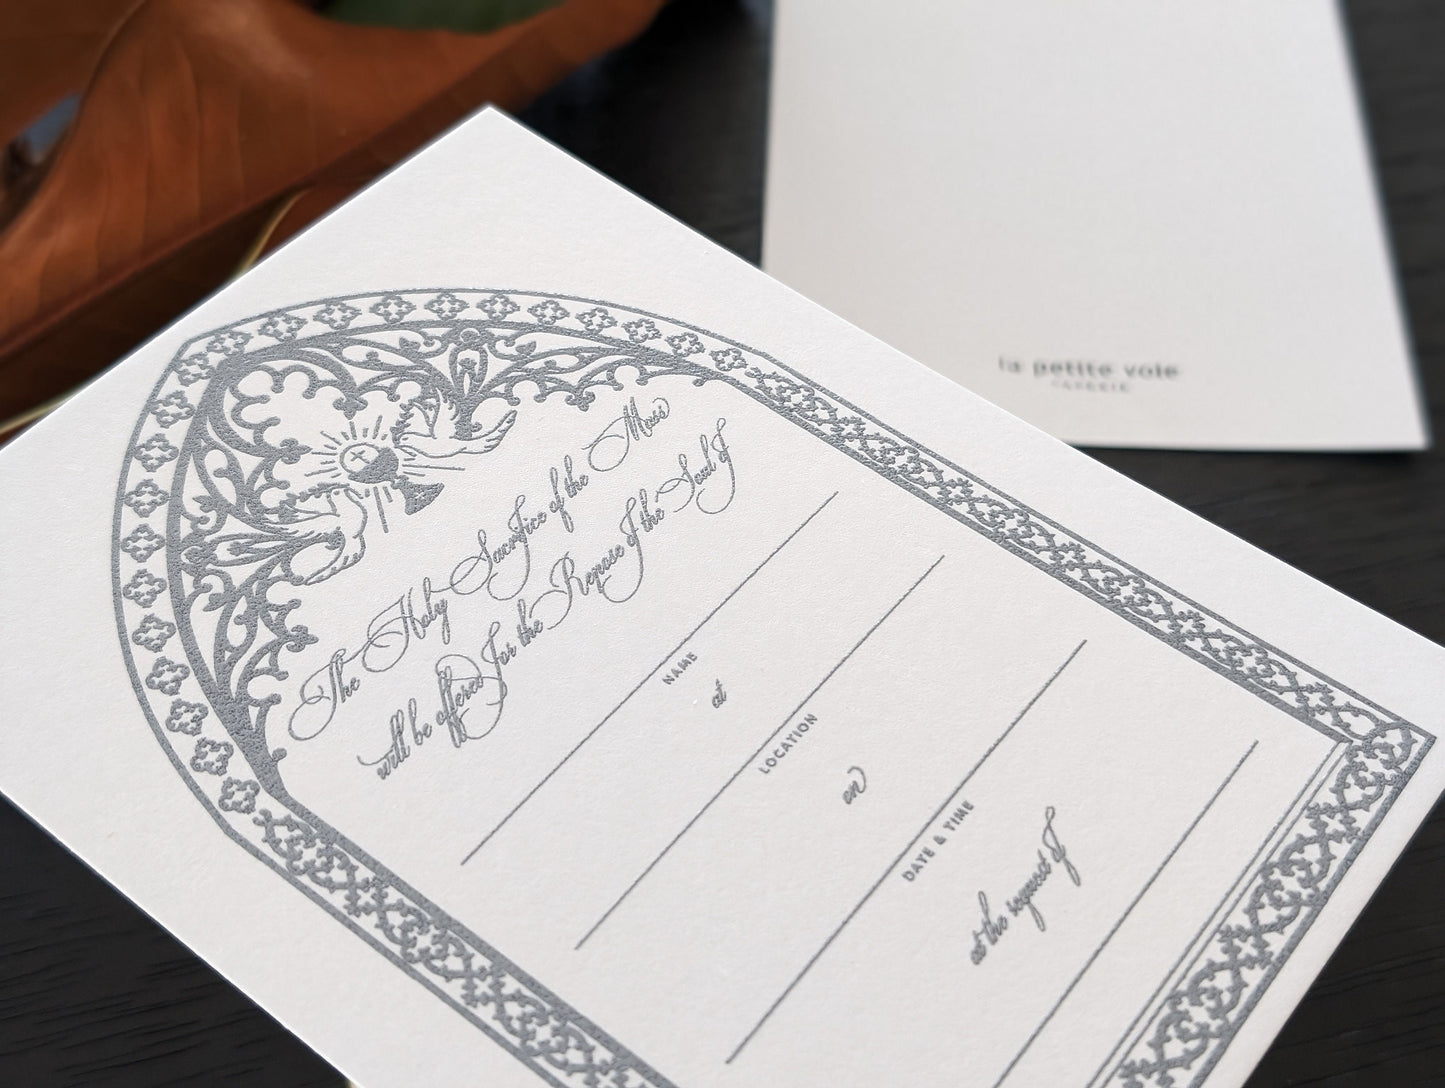 The Holy Sacrifice of the Mass
will be offered for the Repose of the Soul of
NAME
at
LOCATION
on
DATE & TIME
at the request of
la petite voie